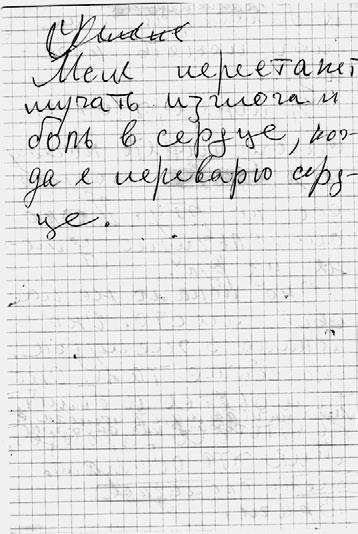 Меня перестанет
мучать изжога и
боль в сердце, ког-
да я переварю серд-
це.